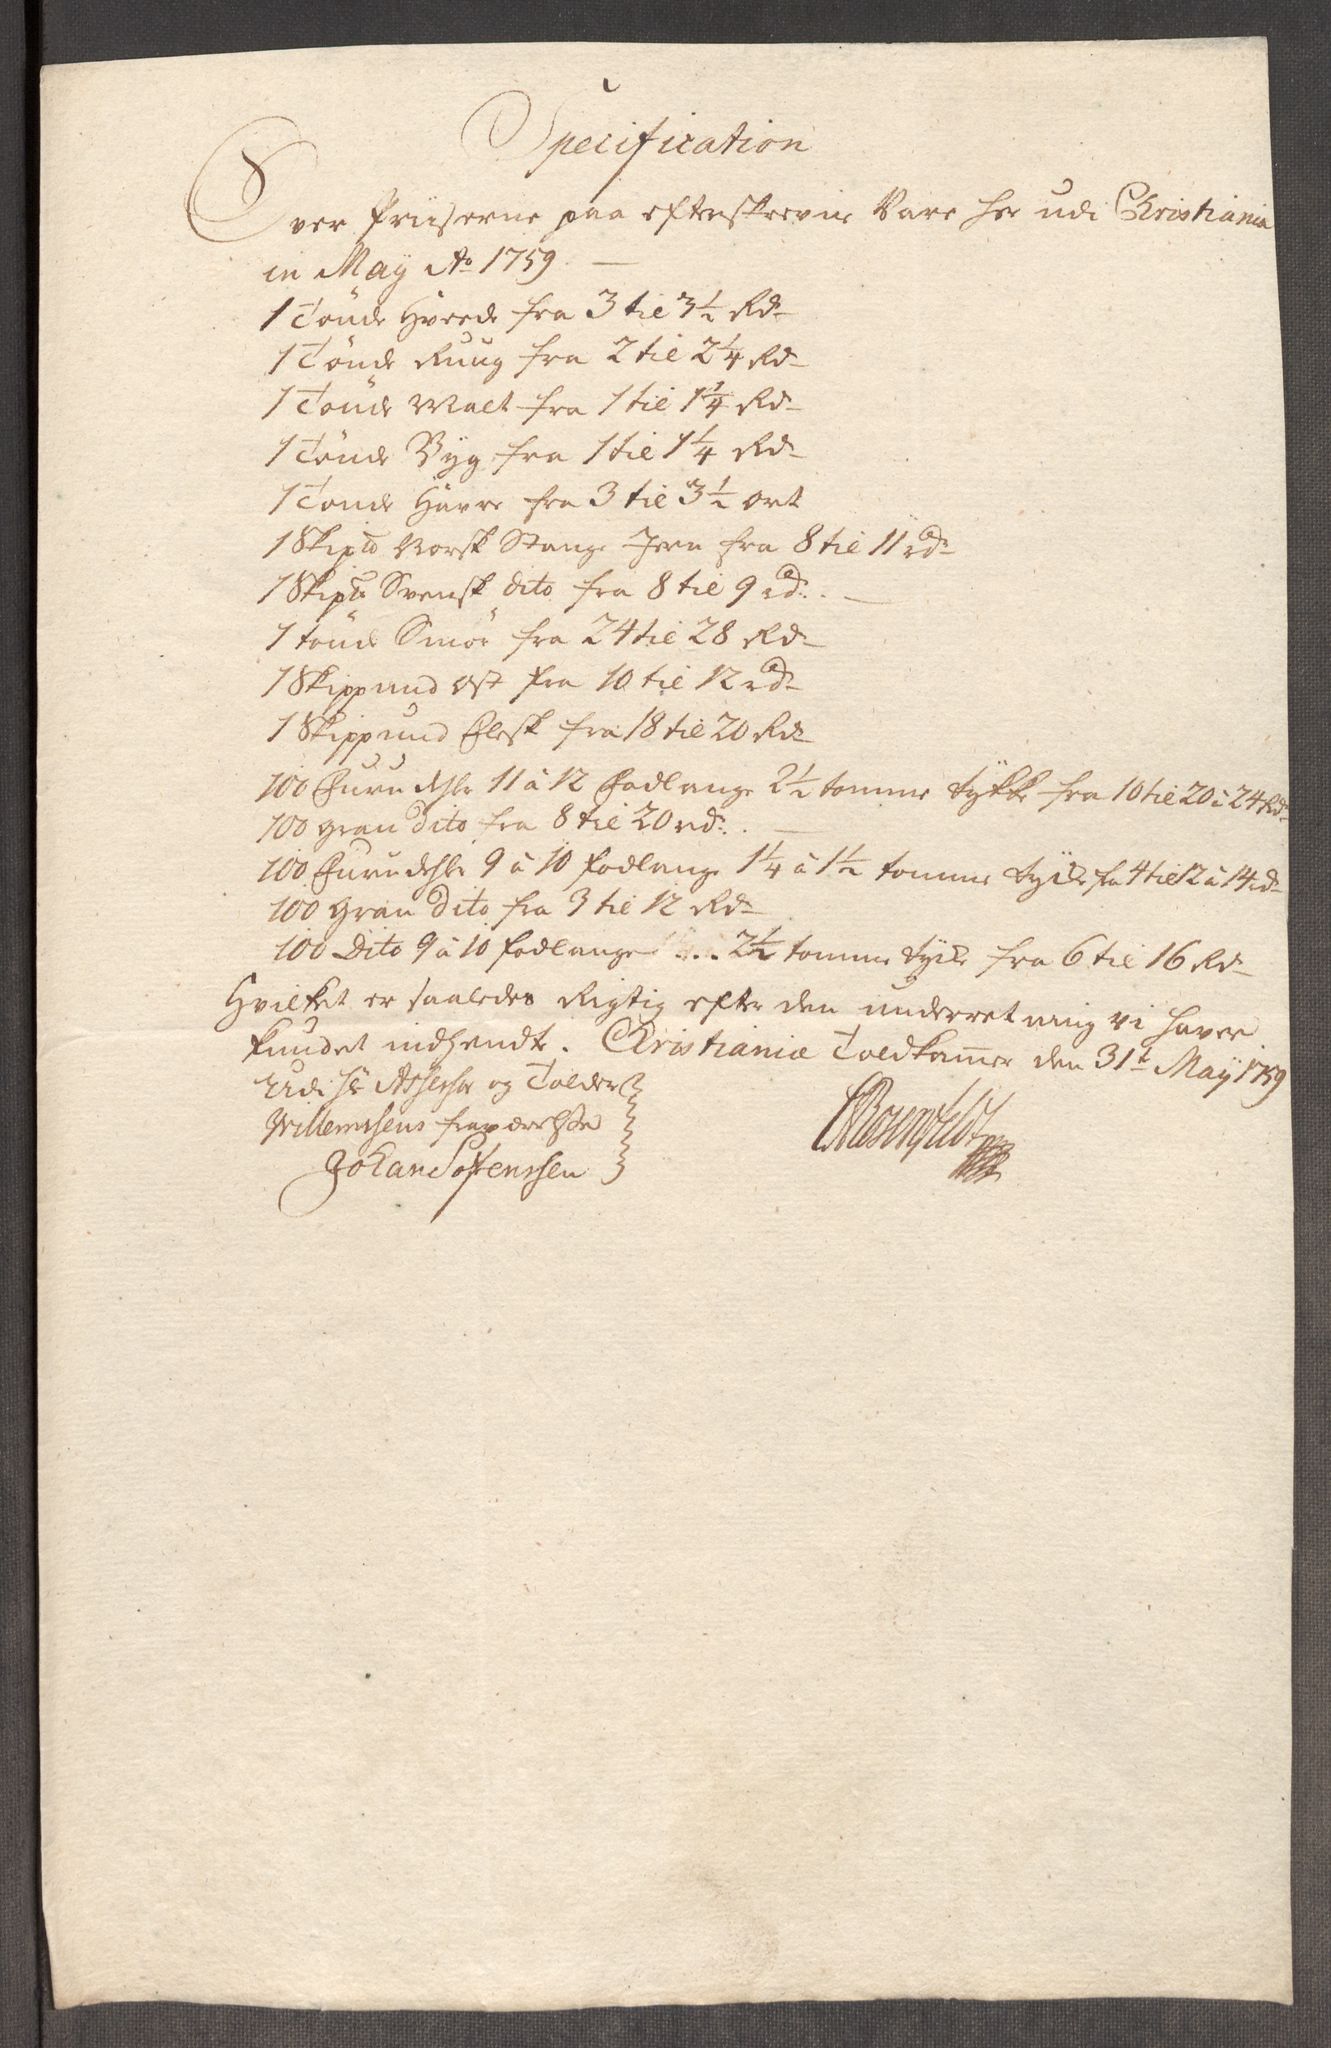 Specification
Over Priiserne paa efterskrevne Vare her udi Christiania
in Maÿ Ao 1759
1 Tönde Hveede fra 3 til 3½ Rd
1 Tönde Ruug fra 2 til 2¼ Rd
1 Tönde Malt fra 1 til 1¼ Rd
1 Tönde Byg fra 1 til 1¼ Rd
1 Tönde Havre fra 3 til 3½ ort
1 Skip℔ Norsk Stange Jern fra 8 til 11 rd
1 Skip℔ Svensk dito fra 8 til 9 rd.
1 tönde Smör fra 24 til 28 Rd
1 Skippund Ost fra 10 til 12 rd
1 Skippund Flesk fra 18 til 20 Rd
100 Furu dehle 11 à 12 Fodlange 2½ tomme tykke fra 10 til 20 à 24 Rd
100 gran dito fra 8 til 20 rd.
100 Furu dehle 9 à 10 fodlange 1¼ à 1½ tomme tÿke fra 4 til 12 à 14 rd
100 Gran dito fra 3 til 12 Rd
100 Dito 9 à 10 fodlange 2½ tomme tÿke fra 6 til 16 Rd
Hvilket er saaledes Rigtig efter den underretning vi haver
kundet indhendte. Christianiæ Toldkamer den 31t Maÿ 1759
Udi Hr Assessor og Tolder
Willemsens fraværelse
Johan Sörenssen
CRosenfeldt